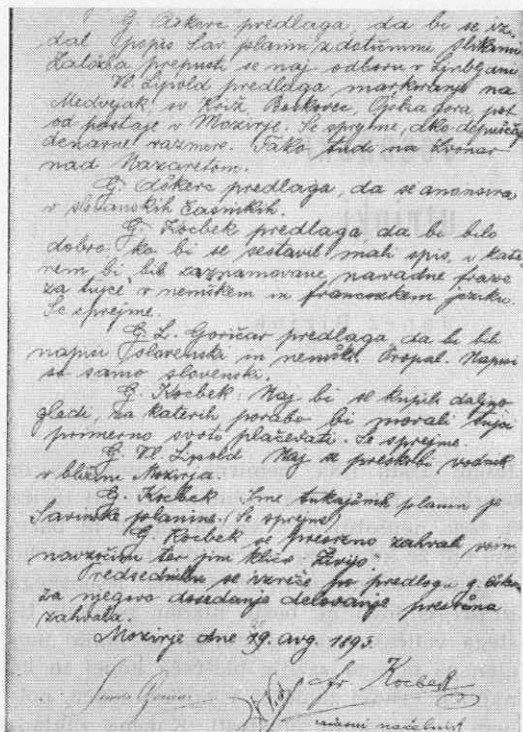 G. Aškerc predlaga, da bi se iz-
dal popis Sav. planin z dotičnimi slikami
Založba prepusti se naj odboru v Ljubljani
V. Lipold predlaga markiranje na
Medvejak sv Križ Boskovec, Goltra gora pot
od postaje v Mozirje. Se sprejme, ako dopuščaj
denarne razmere. Tako tudi na
nad Nazaretom.
G. Aškerc predlaga, da se anonsira
v slovanskih časnikih.
G. Kocbek predlaga, da bi bilo
dobro ko bi se sestavil mali spis, v kate
rem bi bile zaznamovane navadne fraze
za tujce v nemškem in francoskem jeziku.
Se sprejme.
G. L. Goričar predlaga, da bi bili
napisi slovenski in nemški. Propal. Napisi
so samo slovenski.
G. Kocbek: Naj bi se kupili daljno
gledi, za katerih porabo bi morali tujci
primerno svoto plačevati. Se sprejme.
G. V. Lipold Naj se preskrbi vodnik
v bližini Mozirja.
G. Kocbek Ime tukajšnih planin je
Savinske planine. (Se sprejme)
G. Kocbek se presrčno zahvali vsim
navzočim ter jim kliče "Živijo"
Predsedniku se izreče po predlogu g.
za njegovo dosedanje delovanje presrčna
zahvala.
Mozirje dne 29. avg. 1893.
Fr. Kocbek
načelnik